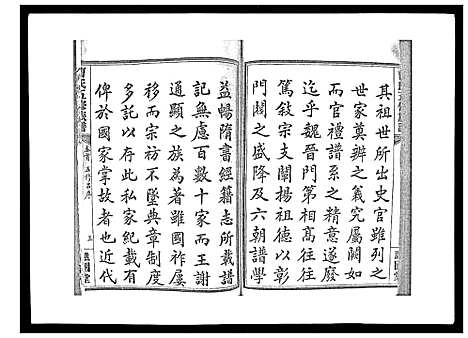 其祖世所出史官雖列之
世家莫辧其義究屬闕如
而官禮譜系之精意遂廢
迄乎魏晉門第相高往往
篤敘宗支闡揚祖德以彰
門閥之盛降及六朝譜學
益暢隋書經籍志所載譜
記無慮百數十家而王謝
通顯之族為著雖國祚屢
移而宗祊不墜典章制度
多託以存此私家紀載有
俾於國家掌故者也近代
五修族譜